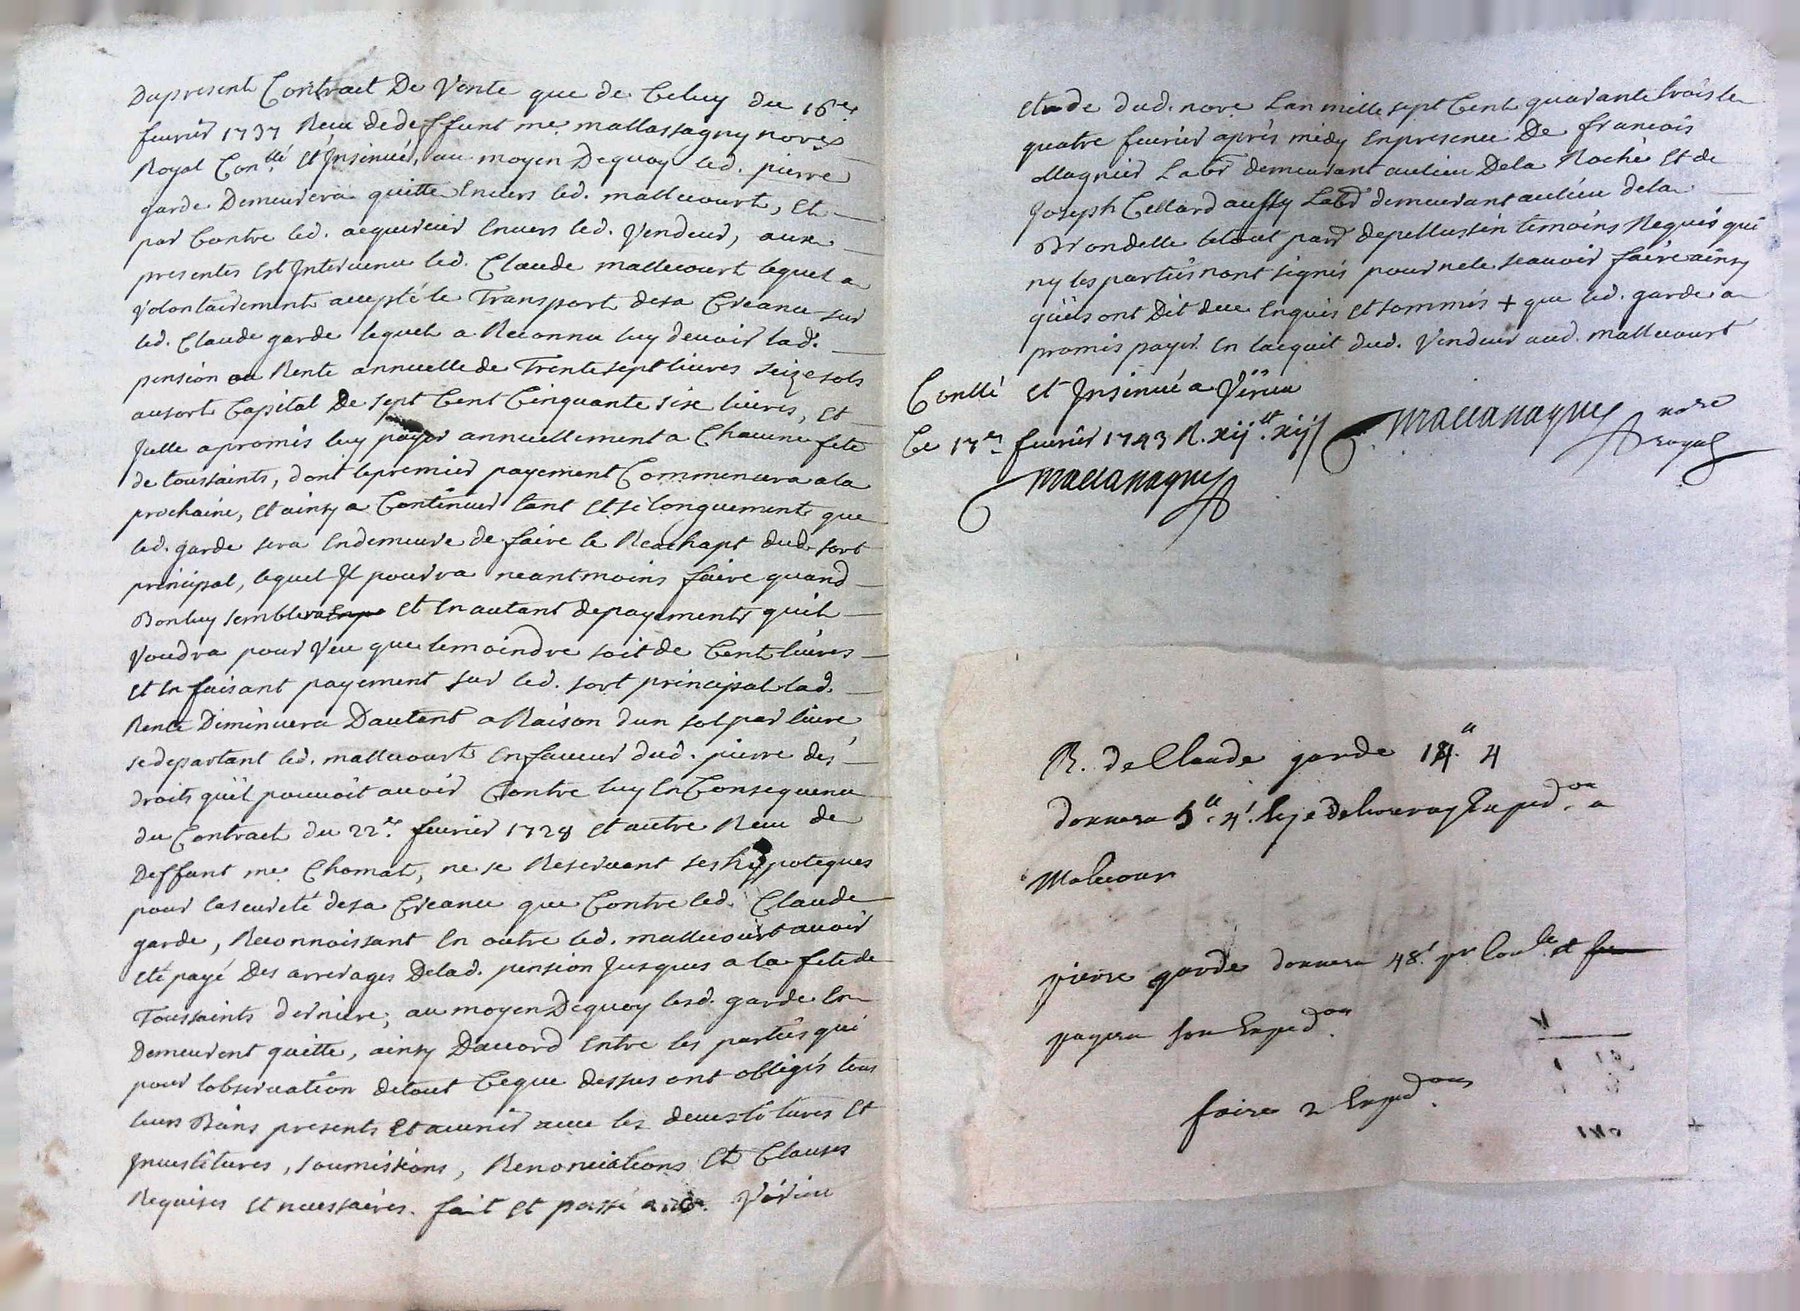 Dupresent Contract De Vente que de Celuy du 16es
fevrier 1737 Receu dedeffunt me. mallassagny nores
Royal Conllé Et Jnsinué, au moyen Dequoy led. pierre
garde Demeurera quitte Envers led. mallecourt, Et
par Contre led. acquereur Envers led. Vendeur, aux
presentes Est Jntervenu led. Claude mallecourt lequel a
Volontairement accepté le Transport desa Creance sur
led. Claude garde lequel a Reconnu luy devoir lad.
pension ou Rente annuelle de Trente sept livres seize sols
au sort Capital De sept Cent Cinquante six livres, Et
Jcelle a promis luy payer annuellement a Chacune fete
de toussaints, dont lepremier payement Commencera a la
prochaine, Et ainsy a Continuer tant Et si longuement que
led. garde sera En demeure de faire le Reachapt dud. sort
principal, lequel Jl pourra neantmoins faire quand
Bon luy semblera Et En autant depayements quil
Voudra pour Veu que lemoindre soit de Cent livres
Et En faisant payement sur led. sort principal lad.
Rente Diminuera Dautent a Raison dun sol par livre,
se departant led. mallecourt En faveur dud. pierre des
droits quil pouvoit avoir Contre luy En Consequence
du Contract du 22es fevrier 1728 Et autre Receu de
Deffunt me Chomat, ne se Reservant ses hypoteques
pour la seureté desa Creance que Contre led. Claude
garde, Reconnoissant En outre led. mallecourt avoir
Eté payé Des arrerages Delad. pension Jusques a la fete de
Toussaints derniere, au moyen Dequoy lesd. garde En
Demeurent quitte, ainsy Daccord Entre les parties qui
pour lobservation detout Ceque dessus ont obligés tous
leurs Biens presents Et avenir avec les devestitures Et
Jnvestitures, soumissions, Renonciations Et Clauses
Requises Et necessaires. fait Et passé a Vérin
Etude dud. nore Lan mille sept Cent quarante trois le
quatre fevrier après midy En presence De françois
Magnier Labr demeurant au lieu Dela Roche Et de
Joseph Cellard aussy Labr demeurant au lieu dela
Brondelle le tout parr depellussin temoins Requis qui
ny les parties nont signés pour ne le scauoir faire ainsy
quils ont Dit de ce Enquis Et sommés + que led. garde a
promis payer En lacquit dud. Vendeur aud. mallecourt
Conllé Et Jnsinué a Virieu
Ce 17es fevrier 1743 R. xij tt xij s
mallassagny nore
royal
mallassagny
R. de Claude garde 14 tt 4
donnera 5 tt 4 s. si je delivre Expedon a
Malecour
pierre garde donnera 48 s pr Conle
payera son Expedon
faire 2 Expedons